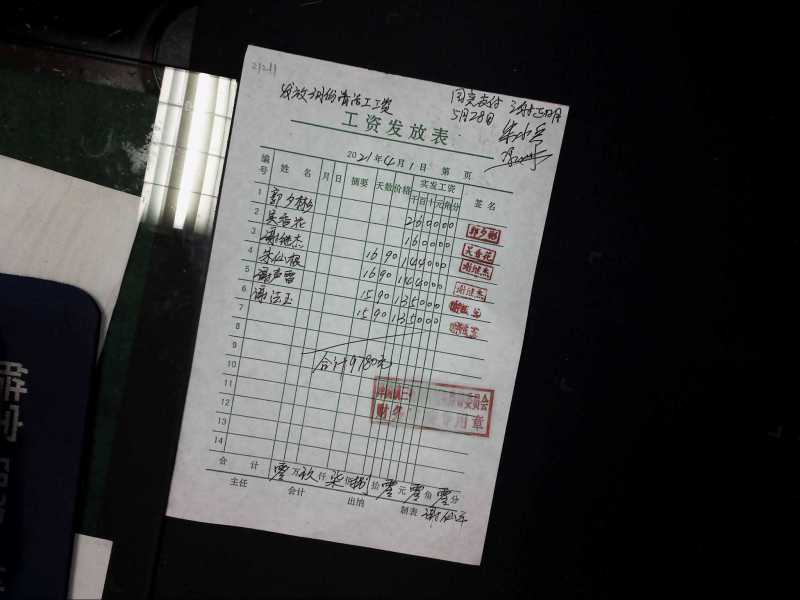 发放3月份清洁工工资
同意支付
5月28日
工资发放表
2021年4月1日 第 页
编号 姓名 月 日 摘要 天数 价格 实发工资 签名
千 百 十 元 角 分
1 郭夕彬 260000 郭夕彬
2 吴香花 160000 吴香花
3 谢继杰 16 90 144000 谢继杰
4 朱仙根 16 90 144000
5 谢声雷 15 90 135000
6 谢洁玉 15 90 135000
7
8
9 合计9780元
10
11
12
13
14
委员会
财务 专用章
合计 零万玖仟柒佰捌拾零元零角零分
主任 会计 出纳 制表